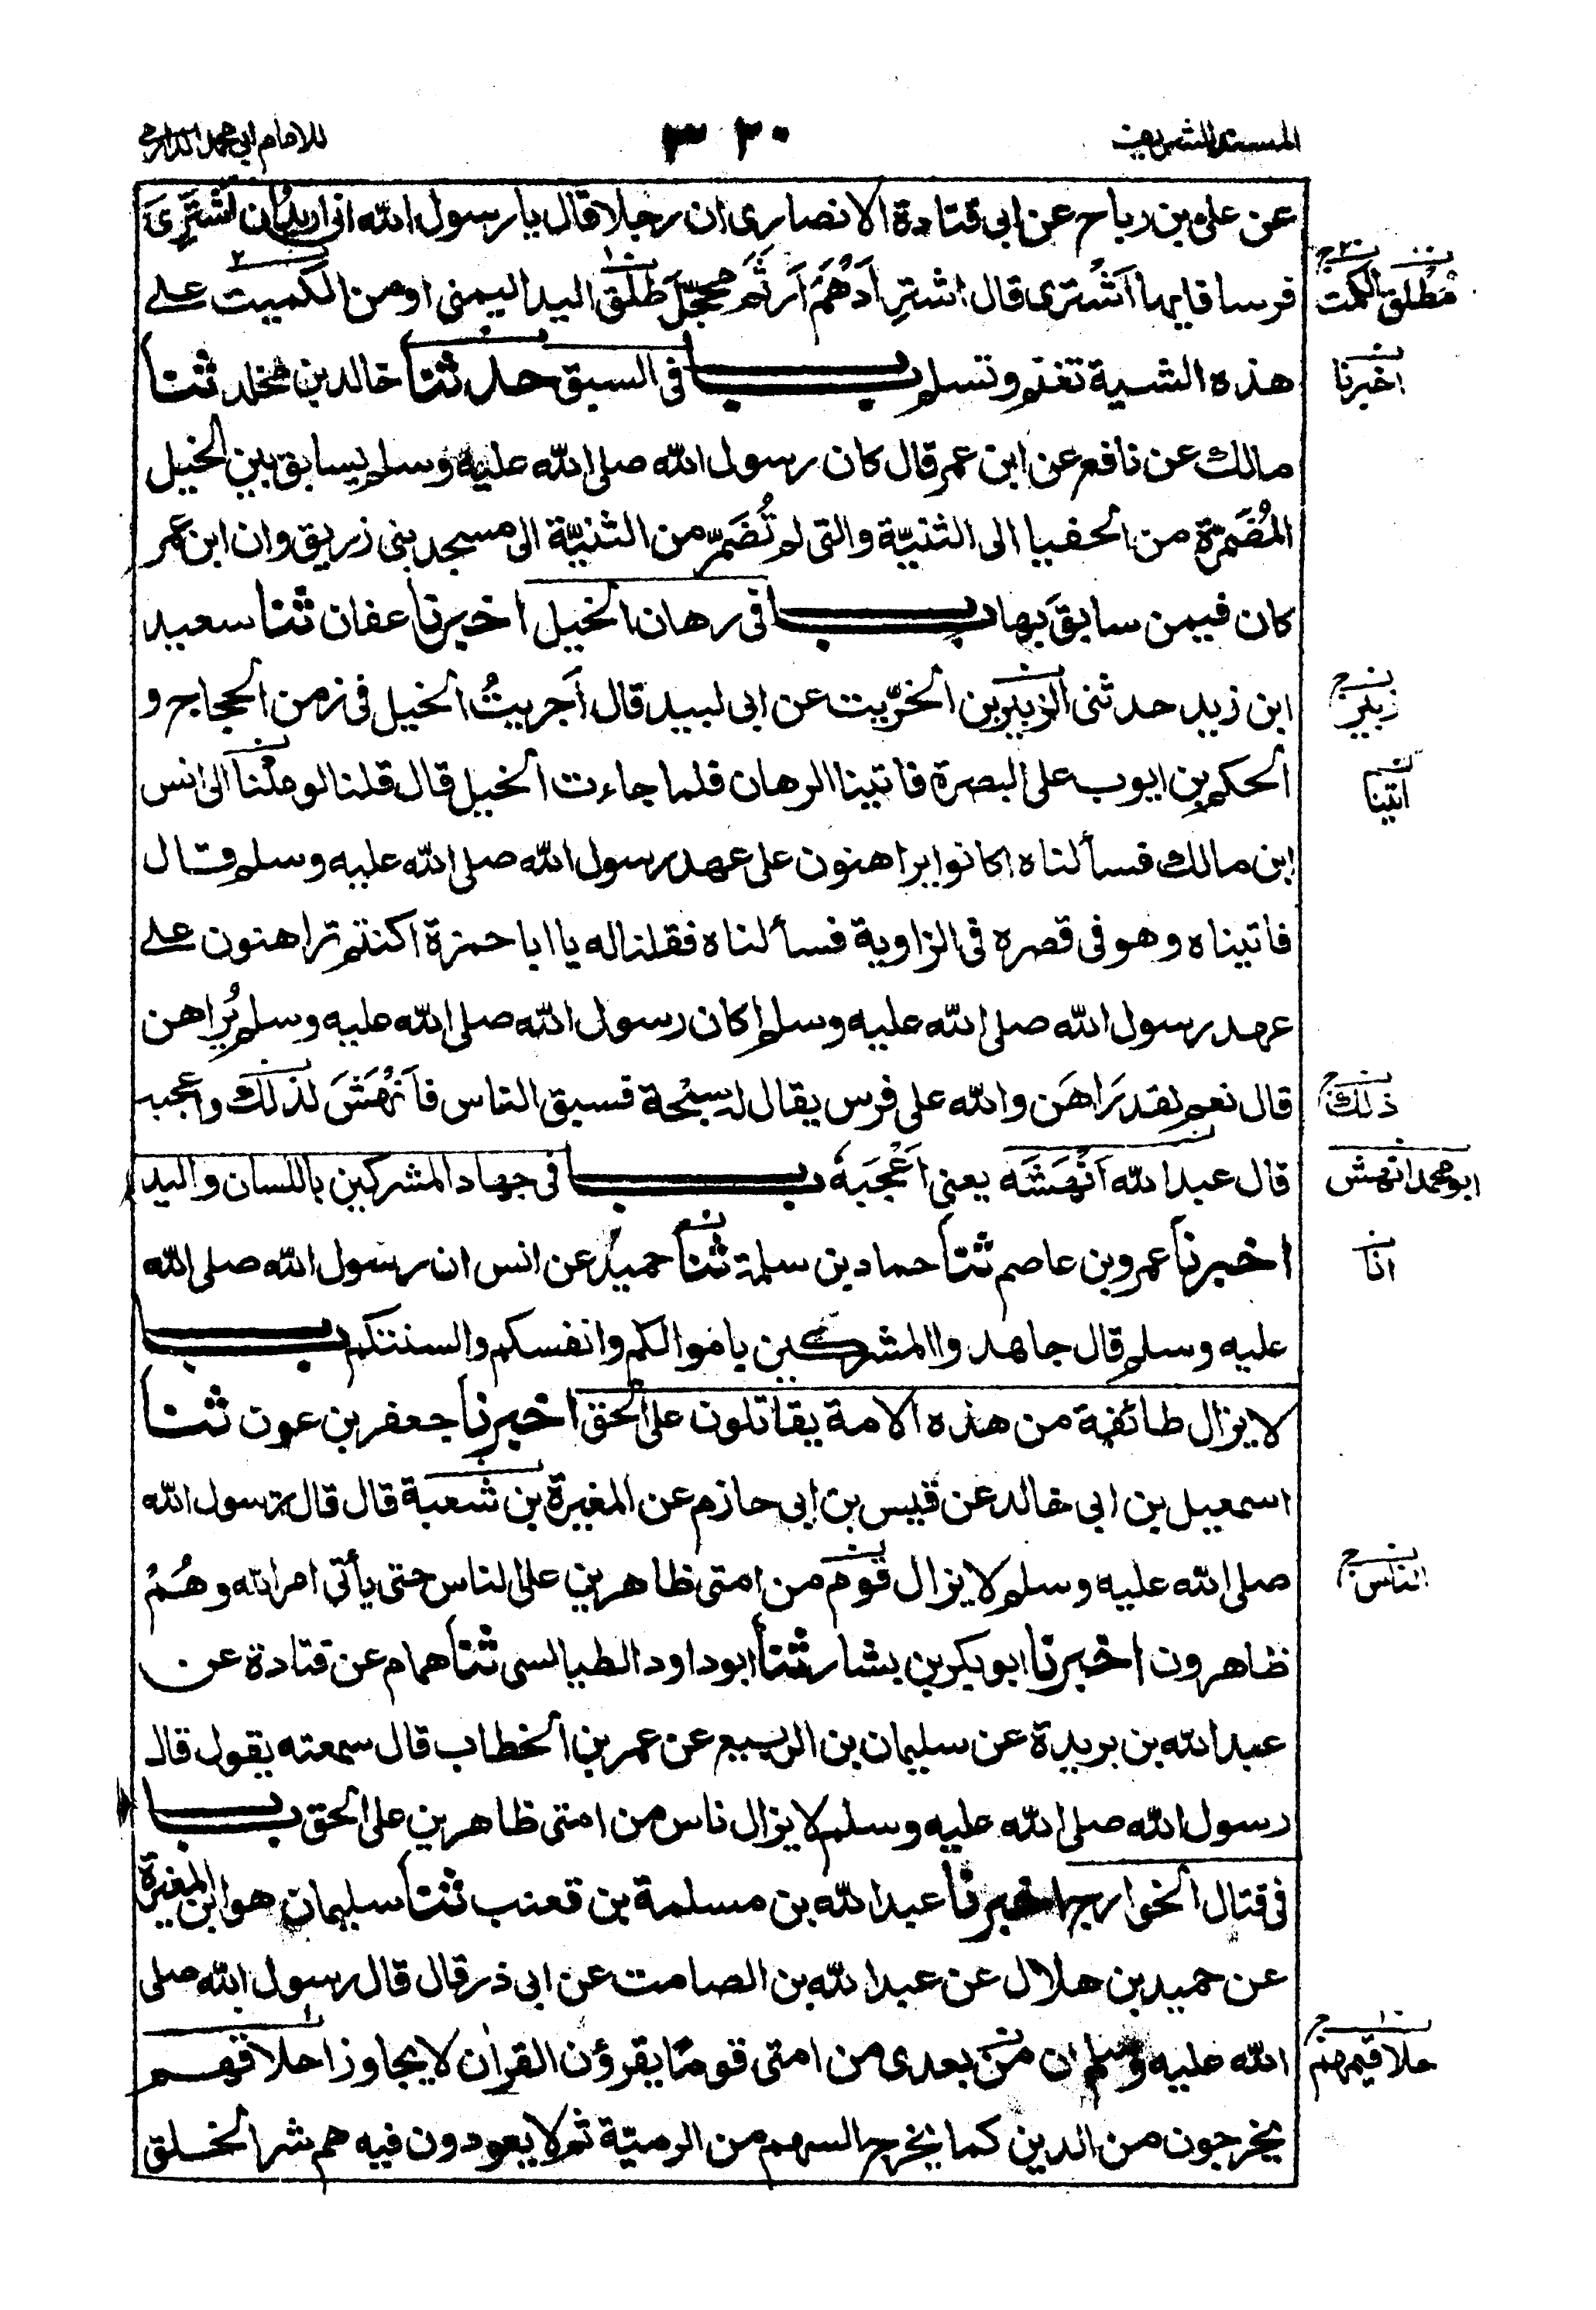 المسند الشريف
٣٢٠
للامام ابي محمد الدارمي
عن علي بن رباح عن ابي قتادة الانصاري ان رجلا قال يا رسول الله اني اريد ان اَشْتَرِيَ
فرسا فايها اَشْتري قال اشترِ اَدْهَمَ اَرثَم محجّلَ طَلْقَ اليد اليمنى او من الكميت على
مُطلق الكمت
هذه الشية تغنم وتسلم باب في السبق حدثنا خالد بن مخلد ثنا
اخبرنا
مالك عن نافع عن ابن عمر قال كان رسول الله صلى الله عليه وسلم يسابق بين الخيل
المُضَمّرة من الحفيا الى الثنيّة والتي لم تُضَمّر من الثنيّة الى مسجد بني زريق وان ابن عمر
كان فيمن سابقَ بها باب في رهان الخيل اخبرنا عفان ثنا سعيد
ابن زيد حدثني الزبير بن الخرّيت عن ابي لبيد قال اَجريتُ الخيل في زمن الحجاج و
زبير
الحكم بن ايوب على البصرة فاتينا الرهان فلما جاءت الخيل قال قلنا لو ملْنا الى انس
اتينا
ابن مالك فسألناه اكانوا يراهنون على عهد رسول الله صلى الله عليه وسلم قال
فاتيناه وهو في قصره في الزاوية فسألناه فقلنا له يا ابا حمزة اكنتم تراهنون على
عهد رسول الله صلى الله عليه وسلم اكان رسول الله صلى الله عليه وسلم يُراهن
قال نعم لقد رَاهَن والله على فرس يقال له سبْحة فسبق الناس فاَنْهَشَ لذلك واعجبه
ذلك
قال عبد الله اَنْهَشَه يعني اَعْجَبَهُ باب في جهاد المشركين باللسان واليد
ابو محمد انهش
اخبرنا عمرو بن عاصم ثنا حماد بن سلمة ثنا حميد عن انس ان رسول الله صلى الله
انا
عليه وسلم قال جاهدوا المشركين باموالكم وانفسكم والسنتكم باب
لا يزال طائفة من هذه الامة يقاتلون على الحق اخبرنا جعفر بن عون ثنا
اسمعيل بن ابي خالد عن قيس بن ابي حازم عن المغيرة بن شعبة قال قال رسول الله
صلى الله عليه وسلم لا يزال قوم من امتي ظاهرين على الناس حتى يأتي امر الله وهُمْ
الناس
ظاهرون اخبرنا ابو بكر بن بشار ثنا ابو داود الطيالسي ثنا همام عن قتادة عن
عبد الله بن بريدة عن سليمان بن الربيع عن عمر بن الخطاب قال سمعته يقول قال
رسول الله صلى الله عليه وسلم لا يزال ناس من امتي ظاهرين على الحق باب
في قتال الخوارج اخبرنا عبد الله بن مسلمة بن قعنب ثنا سليمان هو ابن المغيرة
عن حميد بن هلال عن عبد الله بن الصامت عن ابي ذر قال قال رسول الله صلى
الله عليه وسلم ان من بعدي من امتي قوما يقرؤن القران لا يجاوز احلاقهم
حلاقيمهم
يخرجون من الدين كما يخرج السهم من الرميّة ثم لا يعودون فيه هم شر الخلق